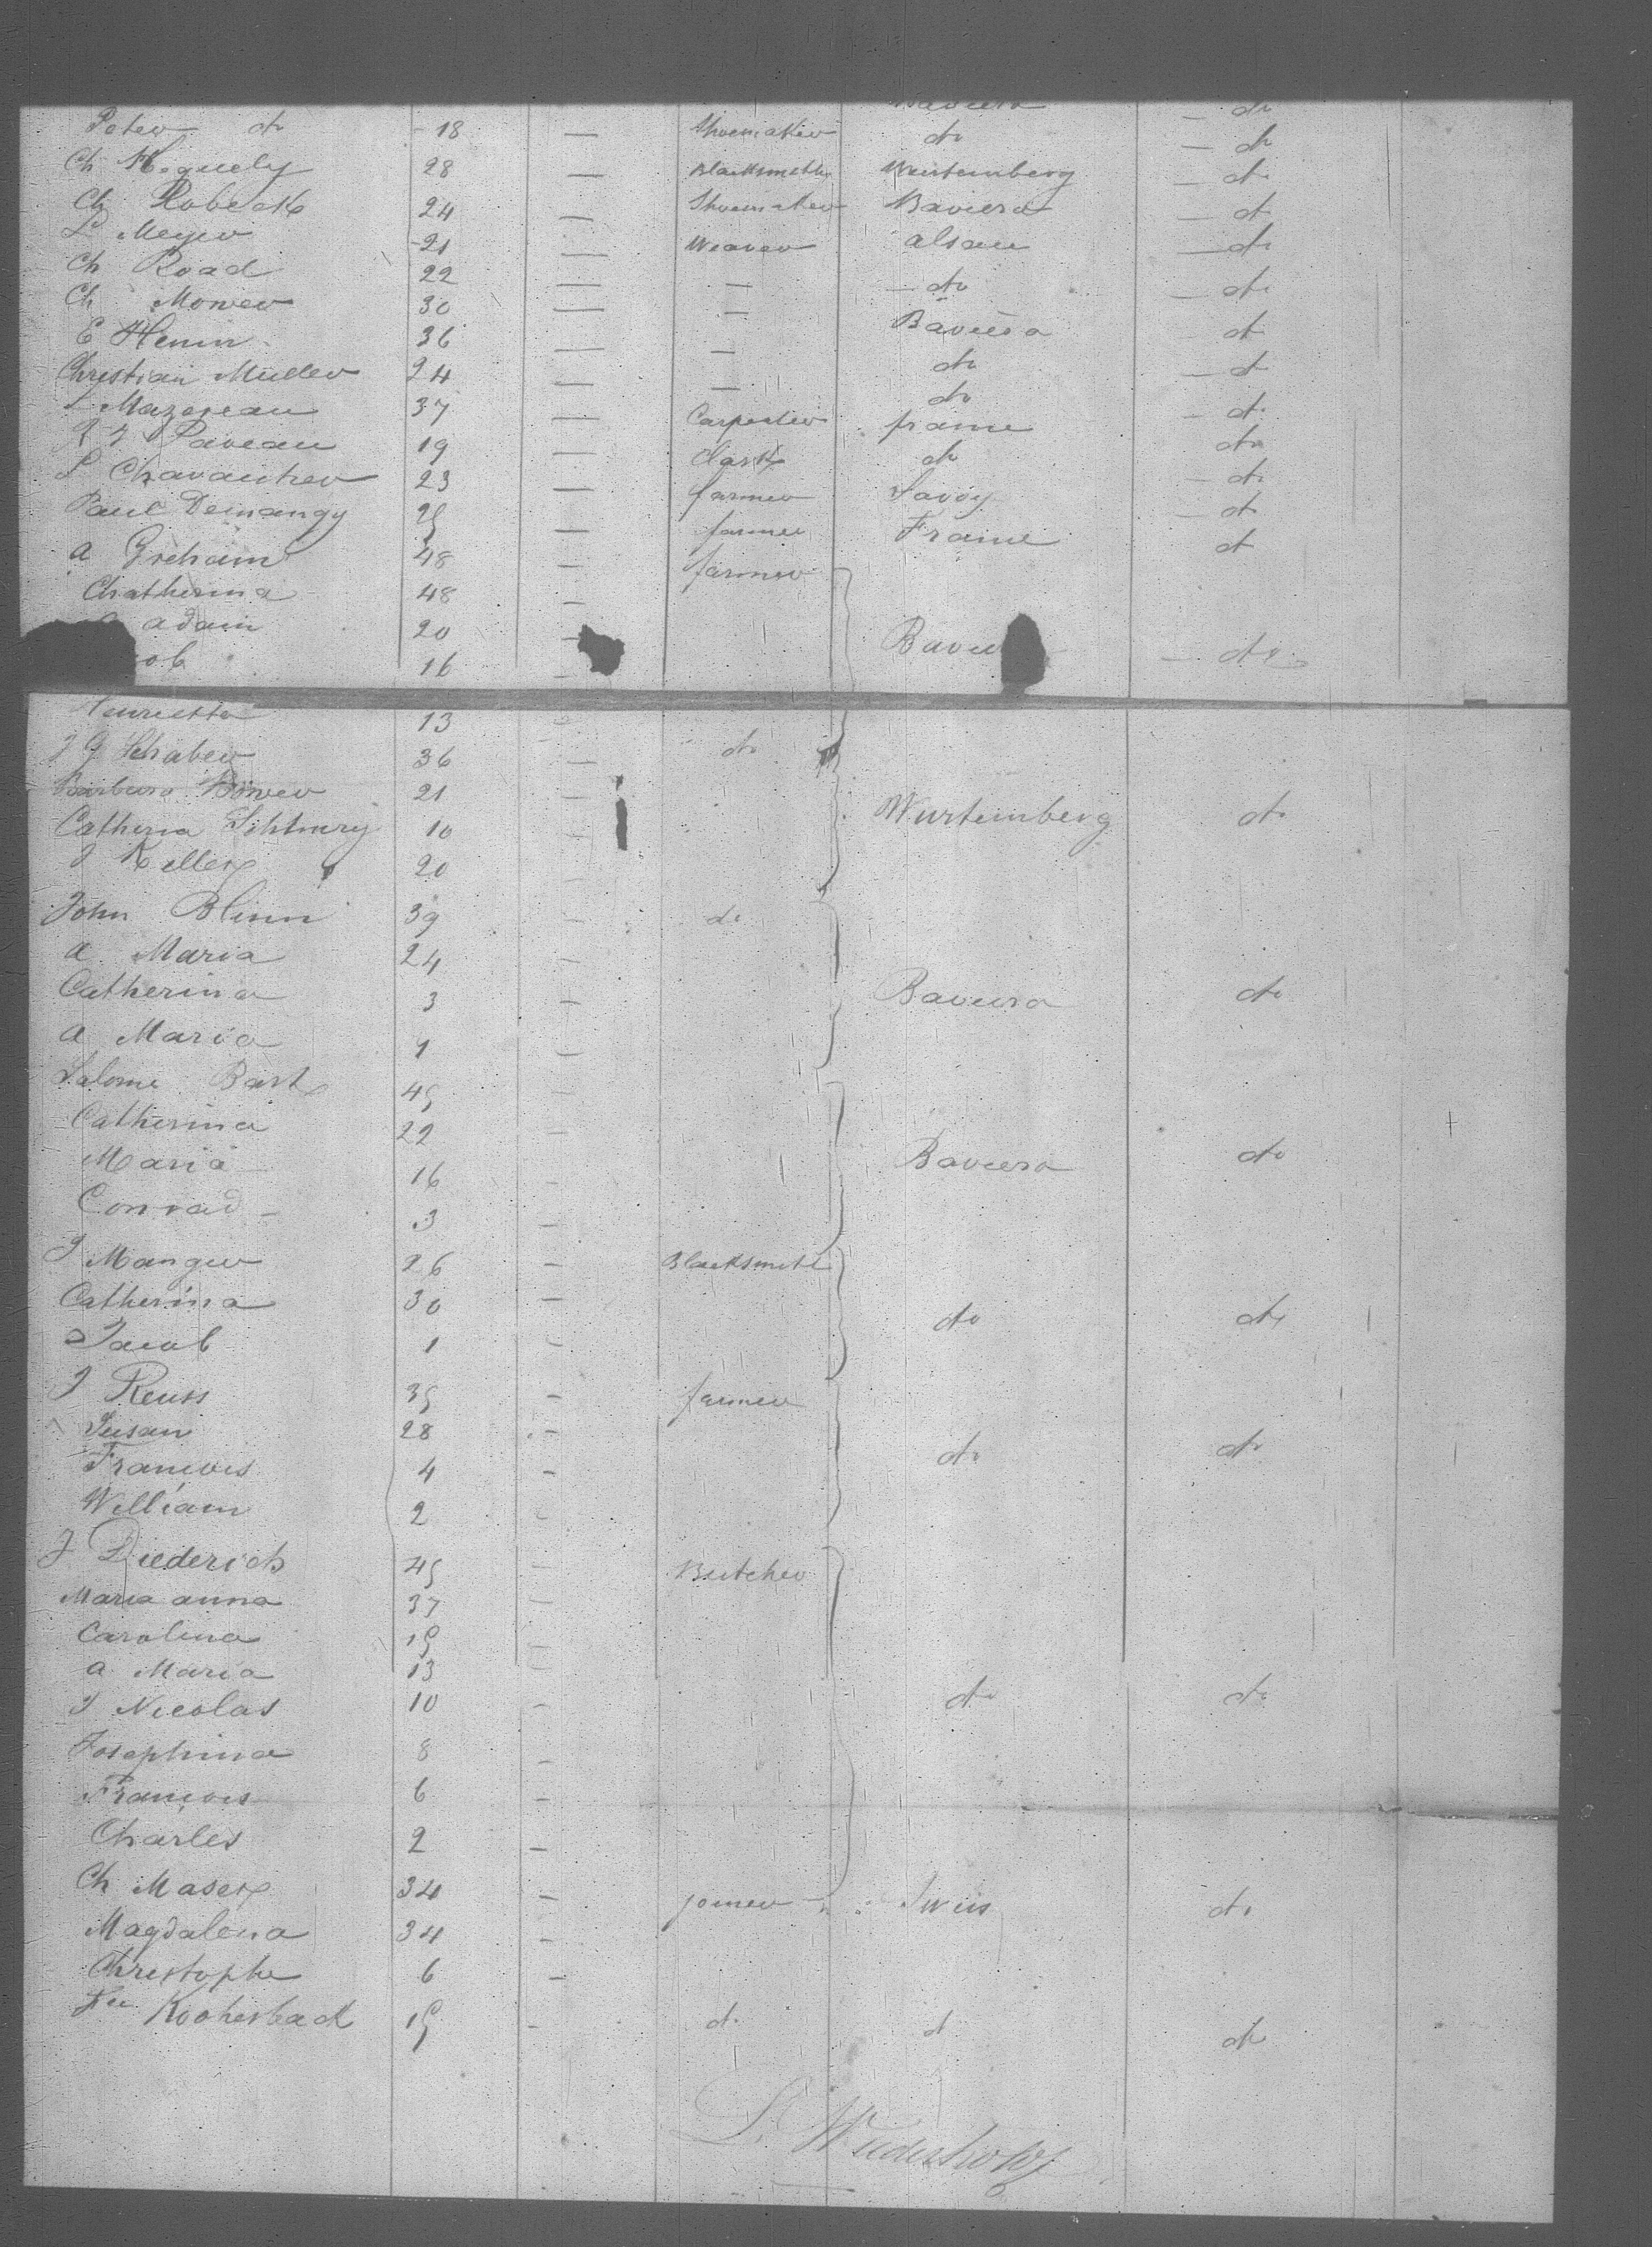 Baviera do
Peter do 18 — Shoemaker do — do
Ch 28 — Blacksmith Wurtemberg — do
Ch Robeck 24 — Shoemaker Baviera — do
P Meyer 21 — Weaver alsace — do
Ch Road 22 — — do — do
Ch Mower 30 — — Baviera do
E Henin 36 — — do — do
Christian Muller 24 — — do — do
Mazereau 37 — Carpenter france do
Paveau 19 — Clark do — do
S Chavantrer 23 — farmer Savoy — do
Paul Demangy 25 — farmer France do
a Greham 48 — farmer
Chatherina 48 —
adam 20 — Bavie — do
ob 16 —
Henrietta 13 —
J G Schaber 36 — do
Barbara Bower 21 —
Catherina 10 — Wurtemberg do
J Keller 20 —
John Blinn 39 — do
a Maria 24 —
Catherina 3 — Baviera do
a Maria 1 —
Salome Bart 45 —
Catherina 22 —
Maria 16 — Baviera do
Conrad — 3 —
J Manger 26 — Blacksmith
Catherina 30 — do do
Jacob 1 —
J Reuss 35 — farmer
Susan 28 —
Francois 4 — do do
William 2 —
J Diederich 45 — Butcher
Maria anna 37 —
Carolina 15 —
a Maria 13 —
J Nicolas 10 — do do
Josephina 8 —
Francois 6 —
Charles 2 —
Ch Maser 34 — joiner — Swiss do
Magdalena 34 —
Christophe 6 —
15 — do do do